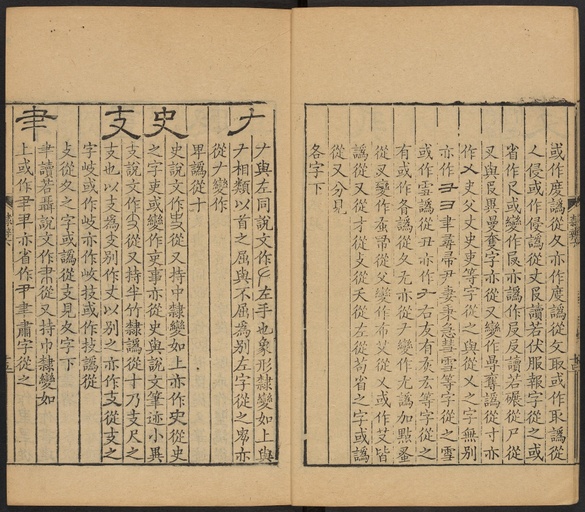 或作度譌從夂亦作度譌從攵取或作取譌從
人侵或作侵譌從丈𠬝讀若伏服報字從之或
省作𠬝或變作𠬝亦譌作𠬝𠬝讀若碾從尸從
又與𠬝異曼奪字亦從又變作𡬶奪譌從寸亦
作乂史父丈史吏等字從之與從乂之字無別
亦作彐彐聿尋帚尹妻秉急彗雪等字從之雪
或作雪譌從丑亦作𠂇右友有灰厷等字從之
有或作各譌從夂尢亦從𠂇變作尢譌加點蚤
從叉變作蚤帚從父變作布艾從乂或作艾皆
譌從又從才從攴從天從左從苟省之字或譌
從又分見
各字下
𠂇
𠂇與左同說文作𠂇左手也象形隸變如上與
𠂇相類以首之屈與不屈為別左字從之𡱂亦
從𠂇變作
卑譌從十
史
史說文作𠭇從又持中隸變如上亦作史從史
之字吏或變作吏事亦從史與說文筆迹小異
支
支說文作𠦙從又持半竹隸譌從十乃支尺之
支也以支為支別作丈以別之亦作支從支之
字岐或作岐亦作岐技或作技譌從
攴從攵之字或譌從支見攵字下
聿
聿讀若聶說文作𦘒從又持巾隸變如
上或作𦘒𦘒亦省作𦘒聿肅字從之